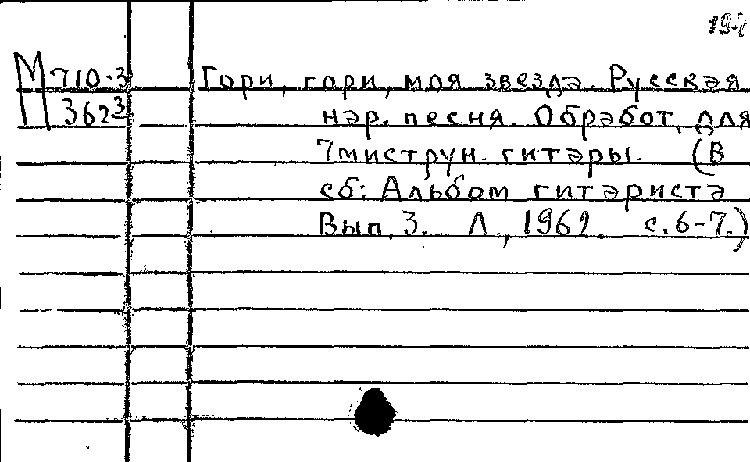 М 710-3 Гори, гори, моя звезда. Русская
3623 нар. песня. Обработ. для
7миструн. гитары. (В
сб: Альбом гитариста
Вып. 3. Л, 1962. с. 6-7.)